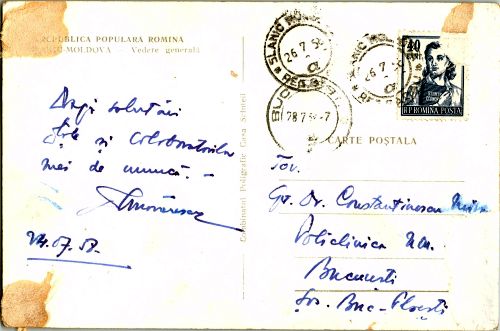 REPUBLICA POPULARA ROMINA
MOLDOVA — Vedere generală
Dragi salutări
și Colaboratorilor
mei de muncă. —
24.07.58.
Combinatul Poligrafic Casa Scînteii
SLANIC
26.7.58
BUC
28.7.58-7
40
BANI
R.P. ROMINA POSTA
CARTE POȘTALA
Tov.
Dr. Constantinescu
Policlinica
București
Șos. Buc-Ploești